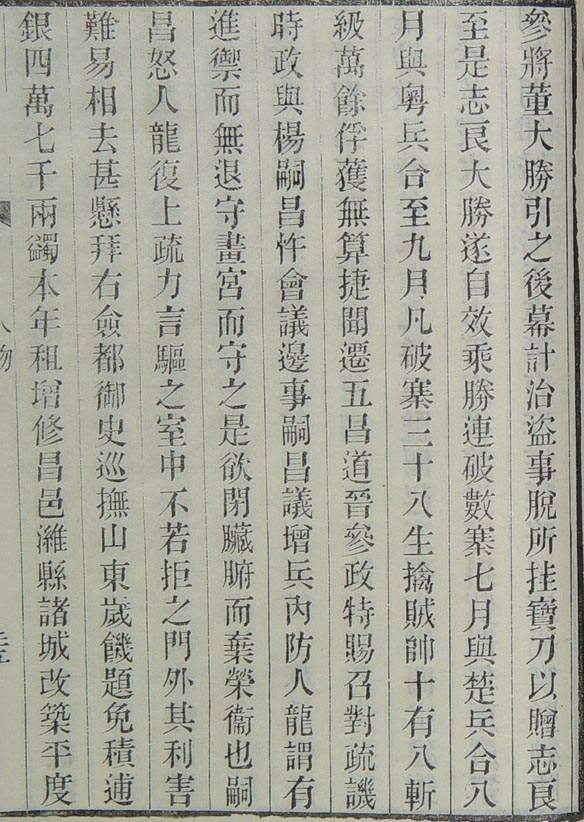 參將董大勝引之後幕計治盜事脫所挂寶刀以贈志良
至是志良大勝遂自效乘勝連破數寨七月與楚兵合八
月與粵兵合至九月凡破寨三十八生擒賊帥十有八斬
級萬餘俘獲無算捷聞遷五昌道晉參政特賜召對疏譏
時政與楊嗣昌忤會議邊事嗣昌議增兵內防人龍謂有
進禦而無退守畫宮而守之是欲閉臟腑而棄榮衞也嗣
昌怒人龍復上疏力言驅之室中不若拒之門外其利害
難易相去甚懸拜右僉都御史巡撫山東歲饑題免積逋
銀四萬七千兩蠲本年租增修昌邑濰縣諸城改築平度
人物